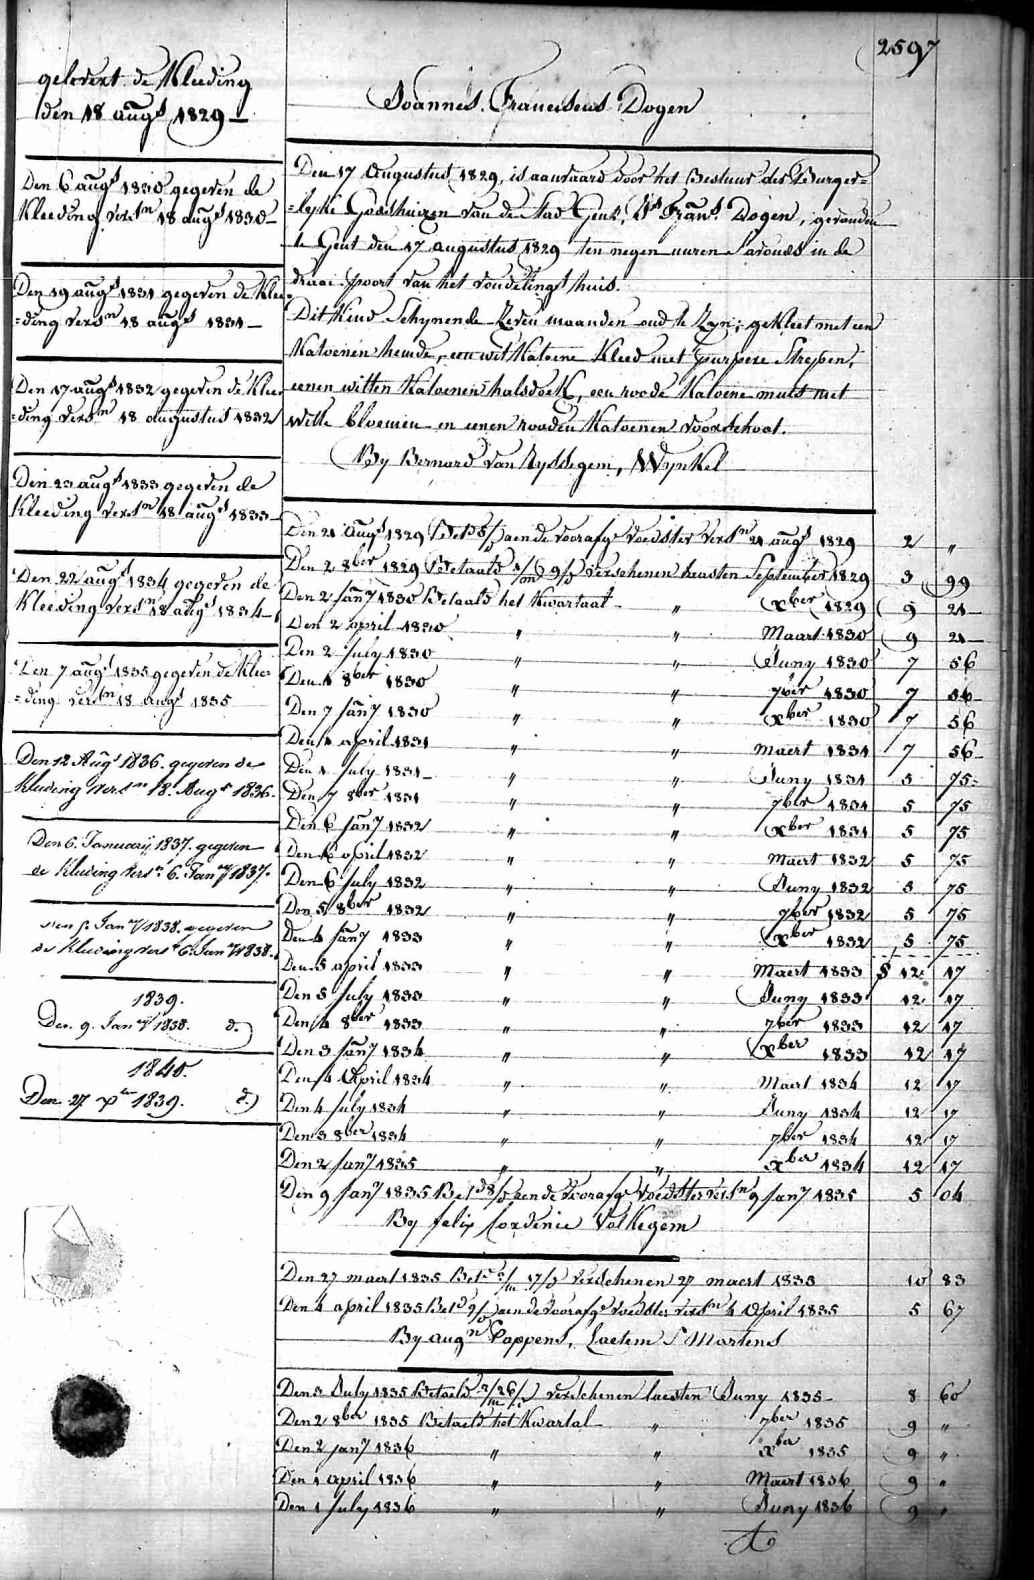 2597
gelevert de Kleeding
den 18 augs 1829
Den 6 augs 1830 gegeven de
Kleeding versn 18 augs 1830
Den 19 augs 1831 gegeven de Klee
=ding versn 18 augs 1831
Den 17 augs 1832 gegeven de Klee
=ding versn 18 augustus 1832
Den 23 augs 1833 gegeven de
Kleeding versn 18 augs 1833
Den 22 augs 1834 gegeven de
Kleeding versn 18 augs 1834
Den 7 augs 1835 gegeven de Klee
=ding versn 18 augs 1835
Den 12 Augs 1836. gegeven de
Kleeding versn 18. Augs 1836.
Den 6. January 1837. gegeven
de Kleeding vers. 6. Jany 1837.
Den 5. Jany 1838. gegeven
de Kleeding vers. 6. Jany 1838.
1839.
Den 9. Jany 1838. d.
1840.
Den 27 xber 1839. d.
Joannes Franciscus Dogen
Den 17 Augustus 1829, is aanvaard door het Bestuur der Burger=
=lyke Godshuizen van de Stad Gent, Js Frans. Dogen, gevonden
te Gent den 17 augustus 1829 ten negen uuren s'avonds in de
draai-poort van het vondelings huis.
Dit Kind Schynende Zeven maanden oud te Zyn; gekleet met een
Katoenen hemde, een wit Katoene Kleed met purpere Strepen,
eenen witten Katoenen halsdoek, een roode Katoene muts met
witte bloemen en eenen rooden Katoenen voorschoot.
By Bernard Van Hyddegem, Wynkel
Den 21 Augs 1829 Betd 5/d aen de voorafge voedster versn 21 augs 1829 2 "
Den 2 8ber 1829 Betaald verschenen laasten September 1829 3 99
Den 2 Jany 1830 Betaald het Kwartaal " xber 1829 9 21
Den 2 april 1830 " " Maart 1830 9 21
Den 2 July 1830 " " Juny 1830 7 56
Den 1 8ber 1830 " " 7ber 1830 7 56
Den 7 Jany 1830 " " xber 1830 7 56
Den 1 april 1831 " " maert 1831 7 56
Den 1 July 1831 " " Juny 1831 5 75
Den 7 8ber 1831 " " 7ber 1831 5 75
Den 6 Jany 1832 " " xber 1831 5 75
Den april 1832 " " Maert 1832 5 75
Den 6 July 1832 " " Juny 1832 5 75
Den 5 8ber 1832 " " 7ber 1832 5 75
Den 4 Jany 1833 " " xber 1832 5 75
Den 5 april 1833 " " Maert 1833 12 17
Den 5 July 1833 " " Juny 1833 12 17
Den 4 8ber 1833 " " 7ber 1833 12 17
Den 3 Jany 1834 " " xber 1833 12 17
Den 4 April 1834 " " Maert 1834 12 17
Den 4 July 1834 " " Juny 1834 12 17
Den 3 8ber 1834 " " 7ber 1834 12 17
Den 2 Jany 1835 " " xber 1834 12 17
Den 9 Jany 1835 Betd 8/d aen de voorafge voedster versn 9 Jany 1835 5 04
By felix Cordenie Volkegem
Den 27 maert 1835 Betd 17/d verschenen 27 maert 1835 10 83
Den 4 april 1835 Betd 9/d aen de voorafge voedster versn 4 April 1835 5 67
By augn Poppens, Laetem St Martens
Den 3 July 1835 Betaeld 2/m 26/d verschenen laesten Juny 1835 8 60
Den 2 8ber 1835 Betaeld het Kwartal " 7ber 1835 9 "
Den 2 jany 1836 " " xber 1835 9 "
Den 1 april 1836 " " Maert 1836 9 "
Den 1 July 1836 " " Juny 1836 9 "